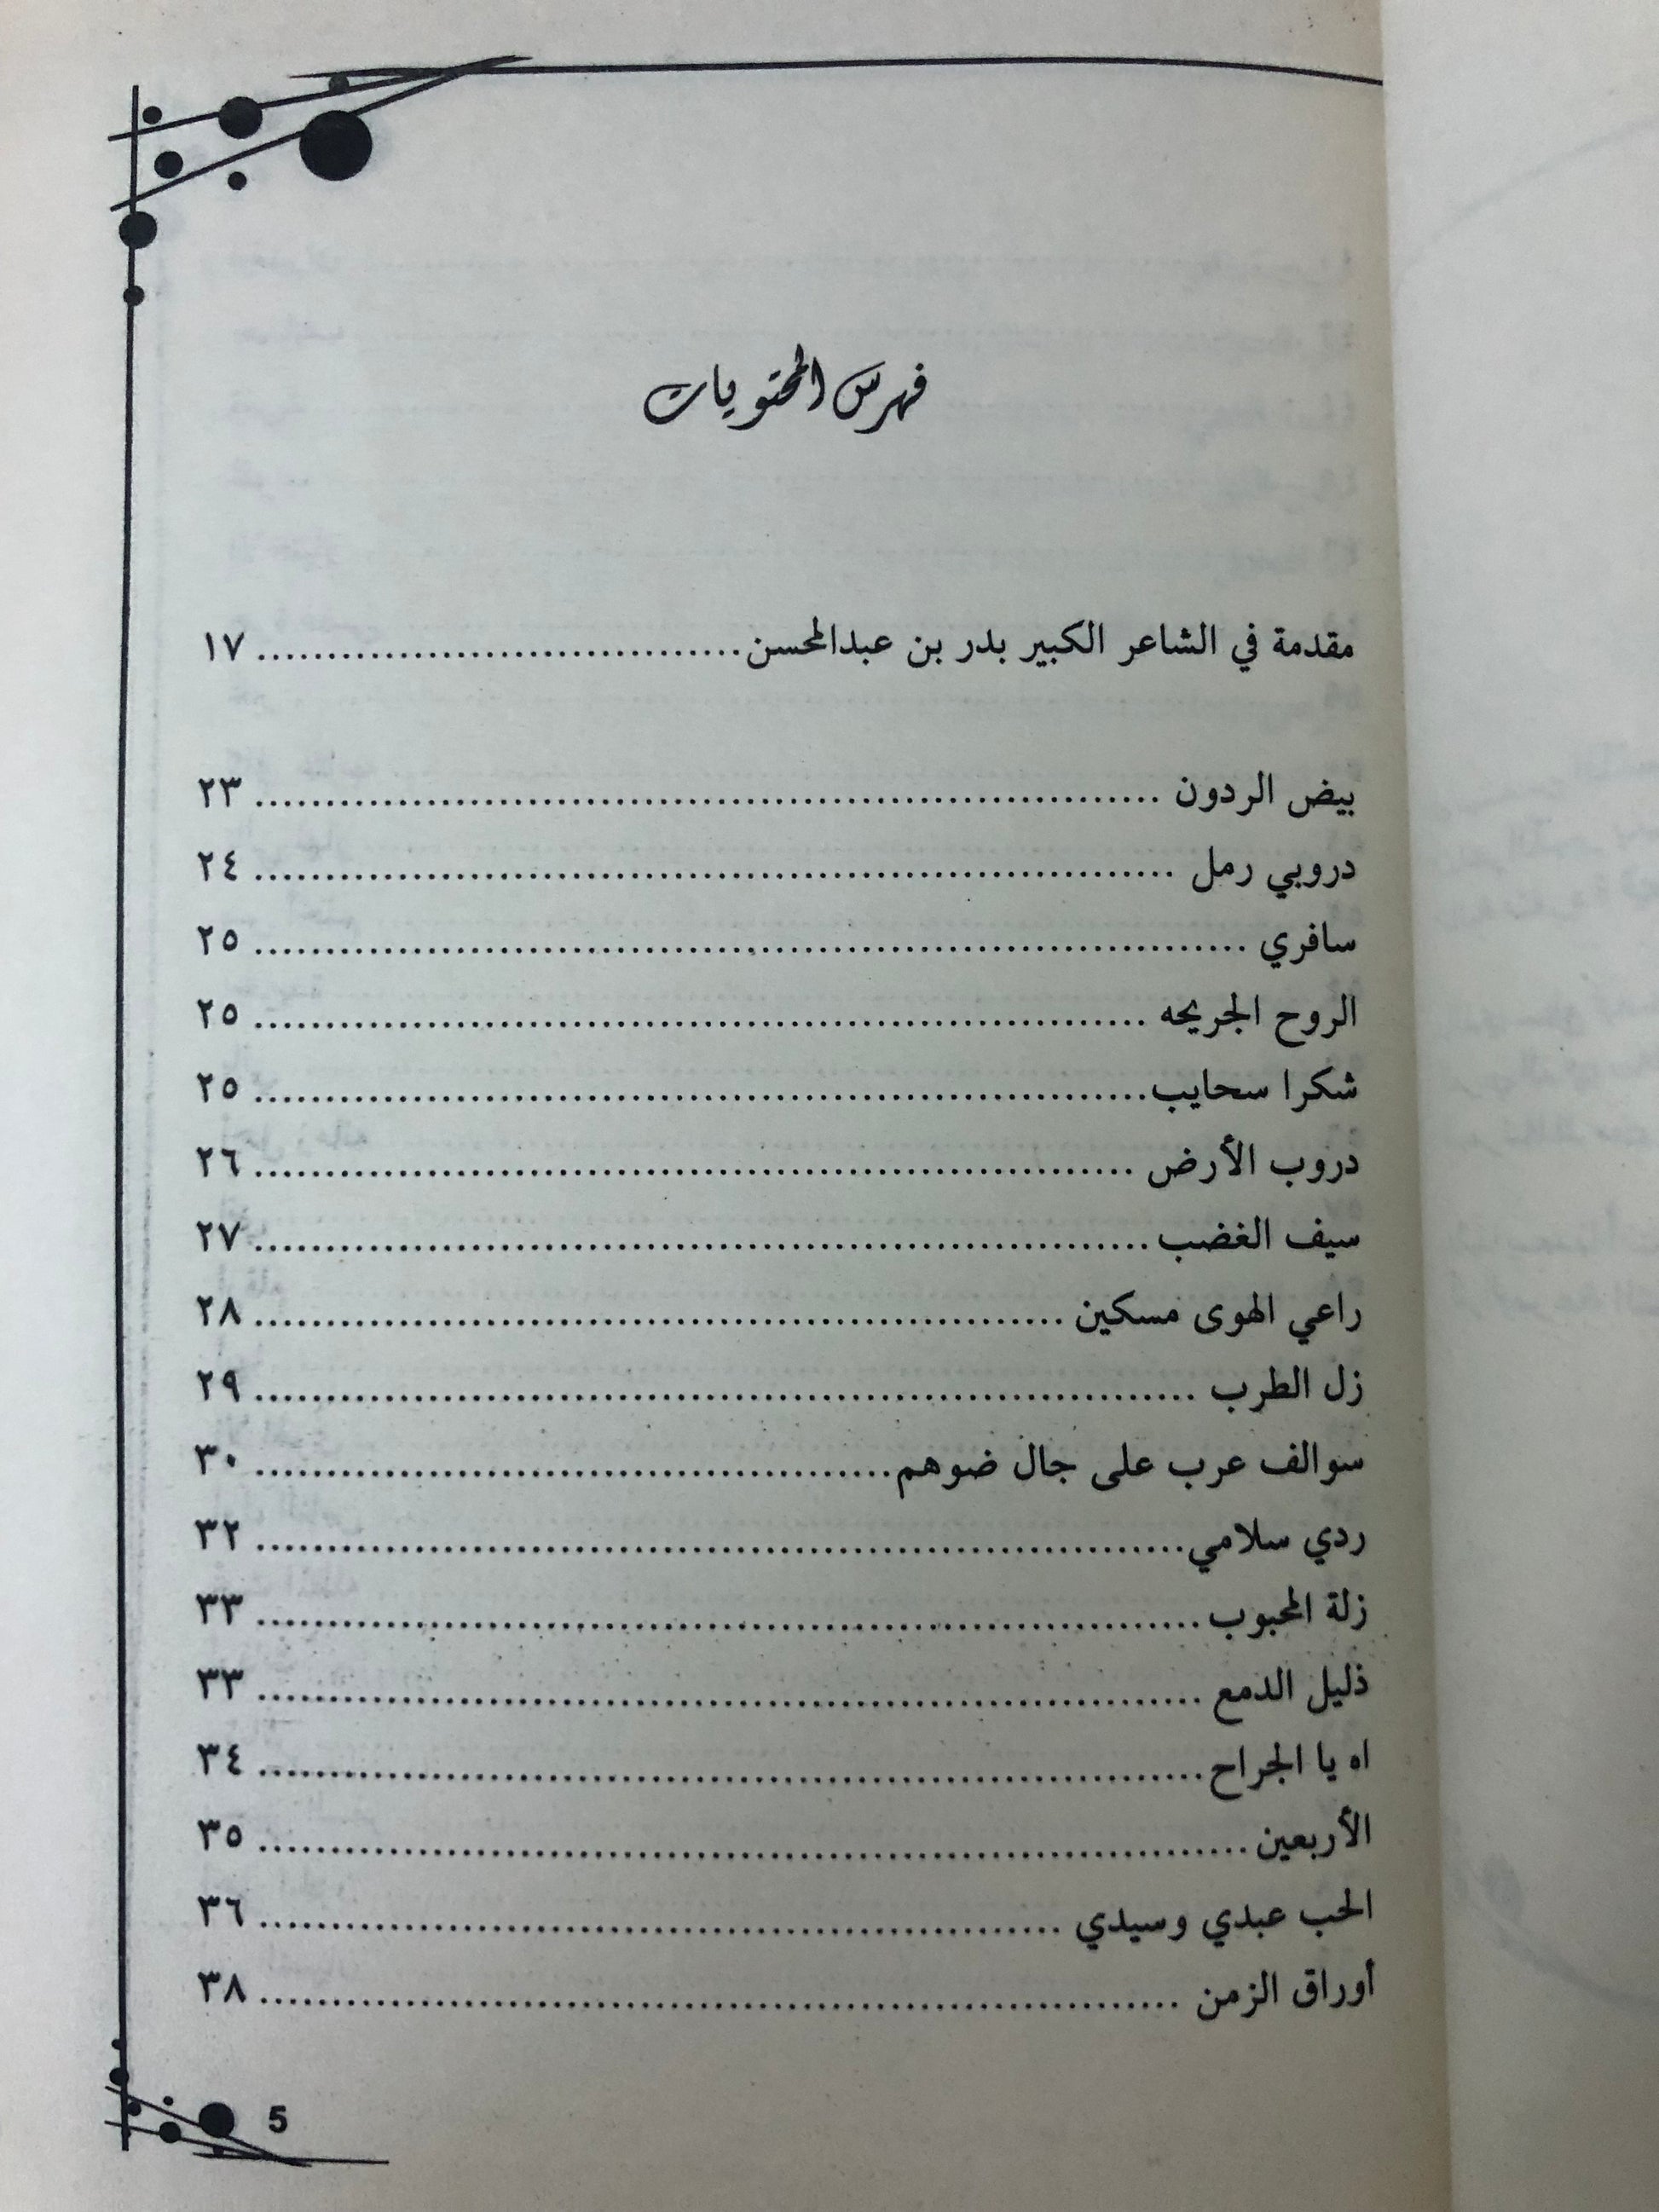 فهرس المحتويات
مقدمة في الشاعر الكبير بدر بن عبدالمحسن.................................. ١٧
بيض الردون ............................................................... ٢٣
دروبي رمل ................................................................ ٢٤
سافري ..................................................................... ٢٥
الروح الجريحه .............................................................. ٢٥
شكرا سحايب.............................................................. ٢٥
دروب الأرض ............................................................. ٢٦
سيف الغضب.............................................................. ٢٧
راعي الهوى مسكين ........................................................ ٢٨
زل الطرب ................................................................. ٢٩
سوالف عرب على جال ضوهم............................................ ٣٠
ردي سلامي................................................................ ٣٢
زلة المحبوب................................................................. ٣٣
ذليل الدمع ................................................................. ٣٣
اه يا الجراح................................................................. ٣٤
الأربعين.................................................................... ٣٥
الحب عبدي وسيدي ........................................................ ٣٦
أوراق الزمن ................................................................ ٣٨
5